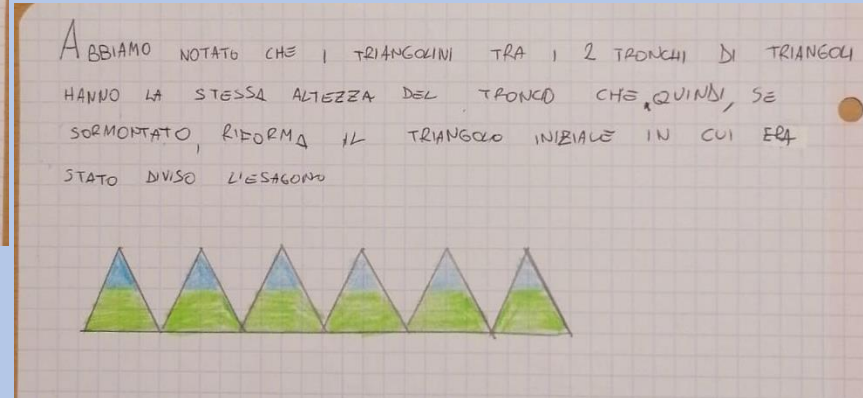 ABBIAMO NOTATO CHE I TRIANGOLINI TRA I 2 TRONCHI DI TRIANGOLI
HANNO LA STESSA ALTEZZA DEL TRONCO CHE, QUINDI, SE
SORMONTATO, RIFORMA IL TRIANGOLO INIZIALE IN CUI ERA
STATO DIVISO L'ESAGONO